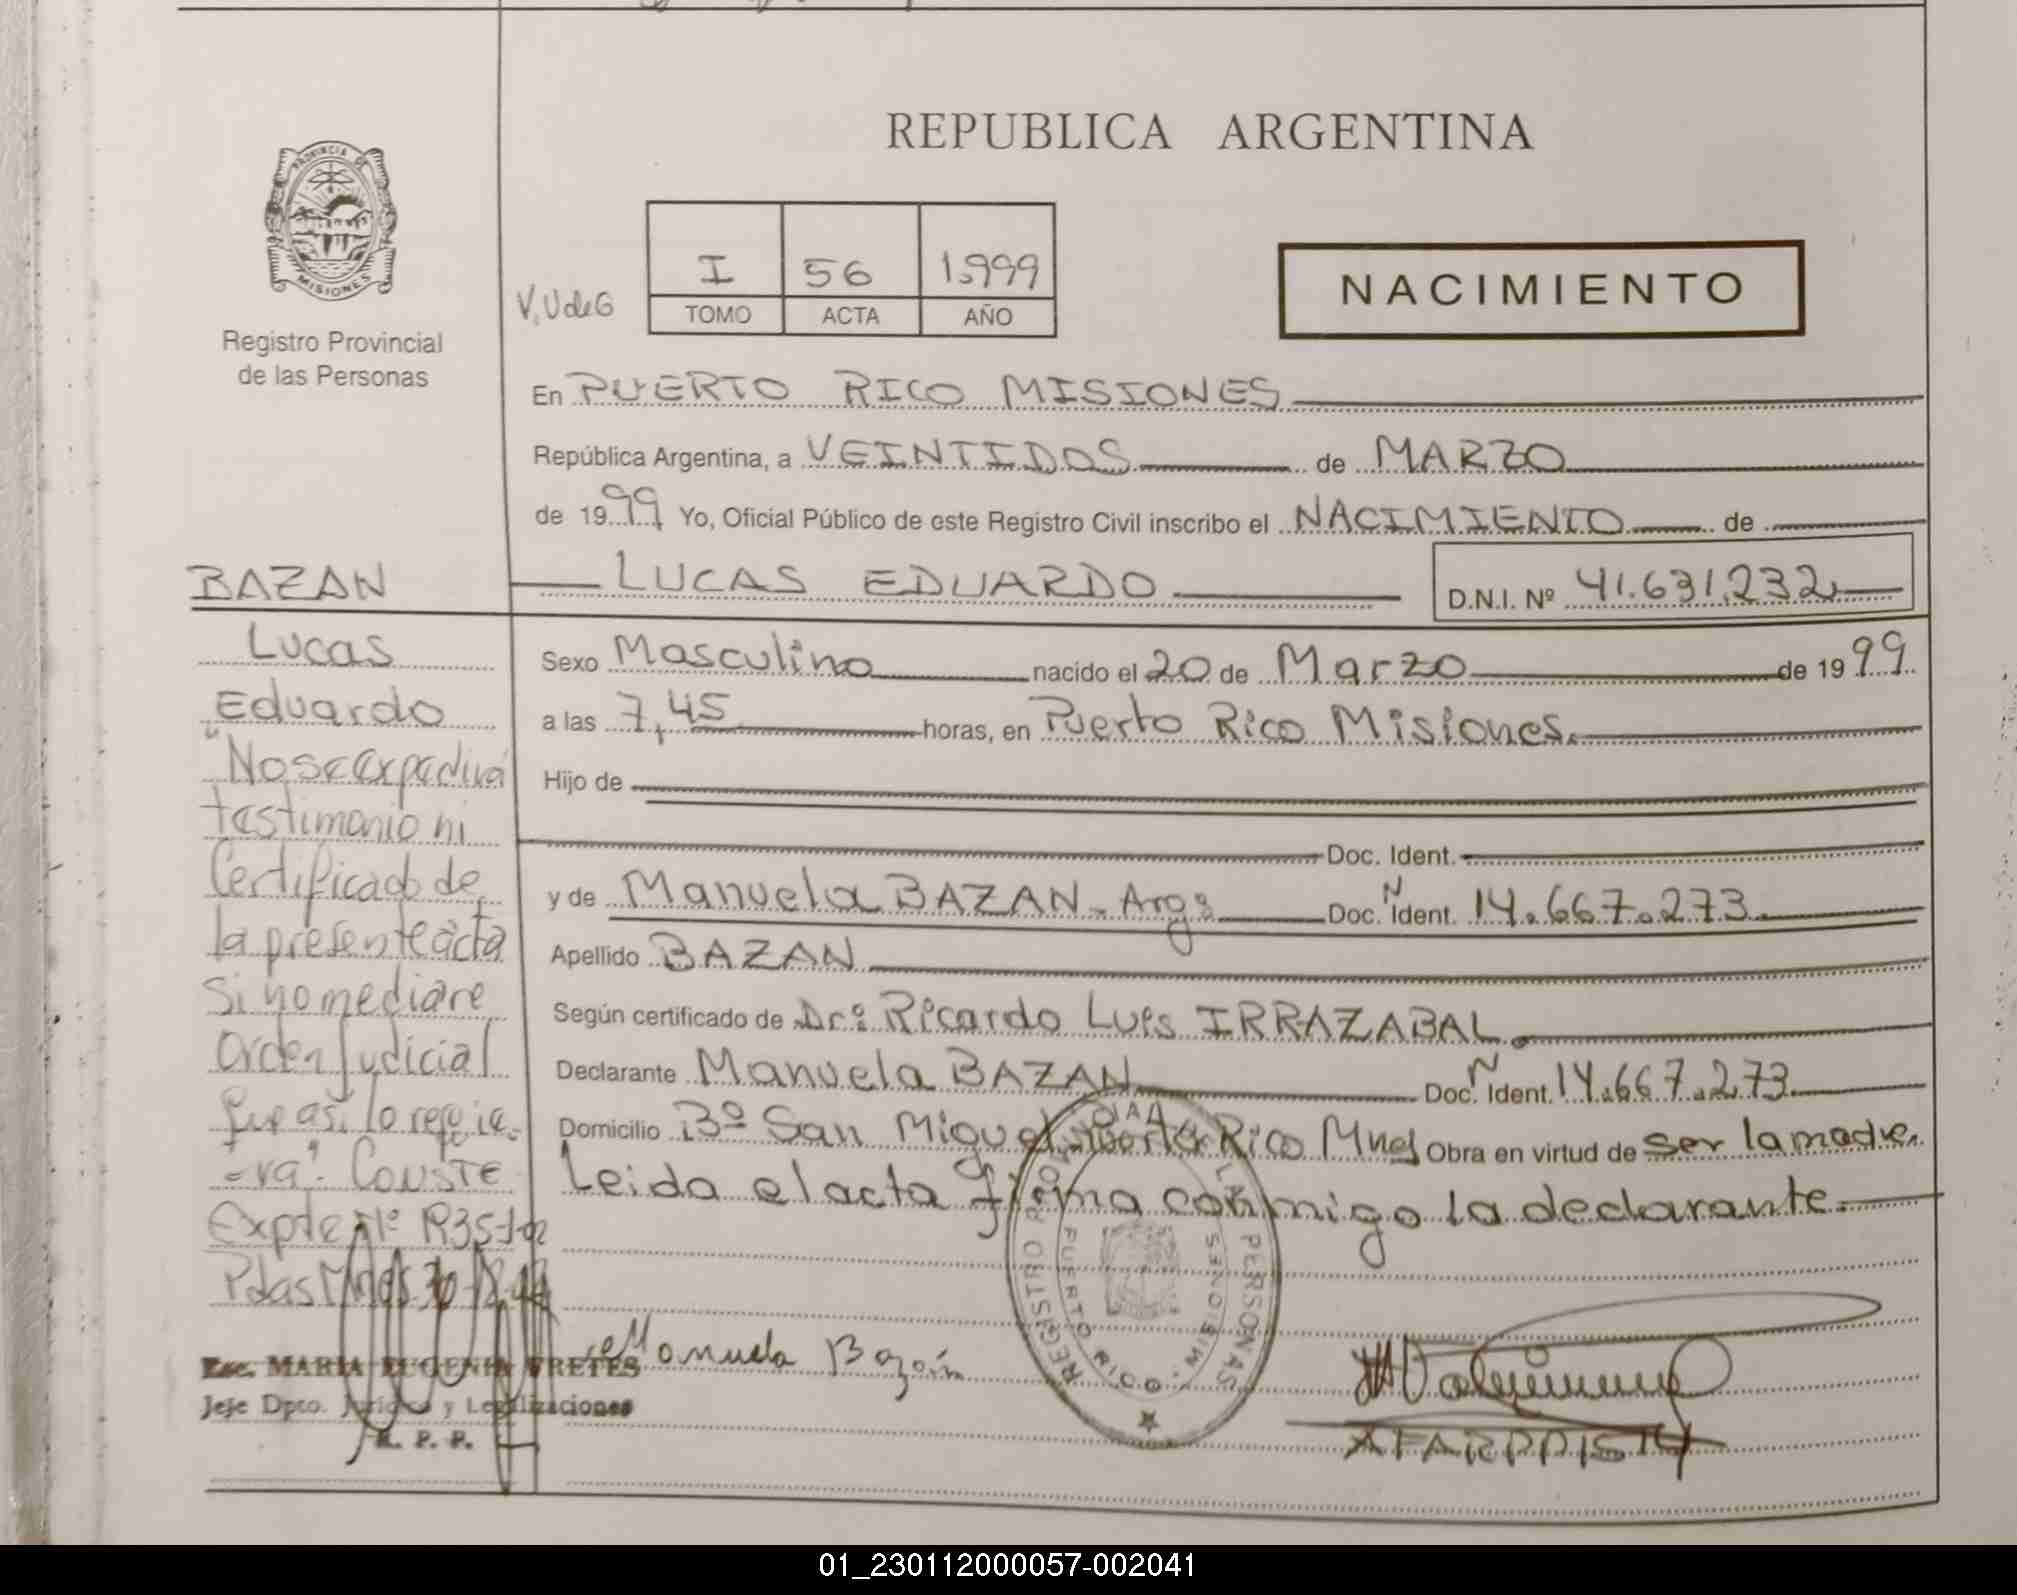 REPUBLICA ARGENTINA
PROVINCIA DE
MISIONES
Registro Provincial
de las Personas
V. UdeG
I 56 1.999
TOMO ACTA AÑO
NACIMIENTO
En PUERTO RICO MISIONES
República Argentina, a VEINTIDOS de MARZO
de 1999 Yo, Oficial Público de este Registro Civil inscribo el NACIMIENTO de
LUCAS EDUARDO D.N.I. Nº 41.631.232
Sexo Masculino nacido el 20 de Marzo de 1999
a las 7,45 horas, en Puerto Rico Misiones.
Hijo de
Doc. Ident.
y de Manuela BAZAN - Arg: Doc. N Ident. 14.667.273
Apellido BAZAN
Según certificado de Dr: Ricardo Luis IRRAZABAL.
Declarante Manuela BAZAN Doc. N Ident. 14.667.273
Domicilio Bº San Miguel Puerto Rico Mnes Obra en virtud de ser la madre.
Leida el acta firma conmigo la declarante.
BAZAN
Lucas
Eduardo
"No se expedirá
testimonio ni
Certificado de
la presente acta
si no mediare
Orden Judicial
que así lo requie-
-ra". CONSTE
Expte Nº
Pdas Mnes
Esc. MARIA EUGENIA FRETES
Jefe Dpto. Jurídico y Legalizaciones
R. P. P.
Manuela Bazán
REGISTRO PROVINCIAL DE LAS PERSONAS
PUERTO RICO - MISIONES
01_230112000057-002041